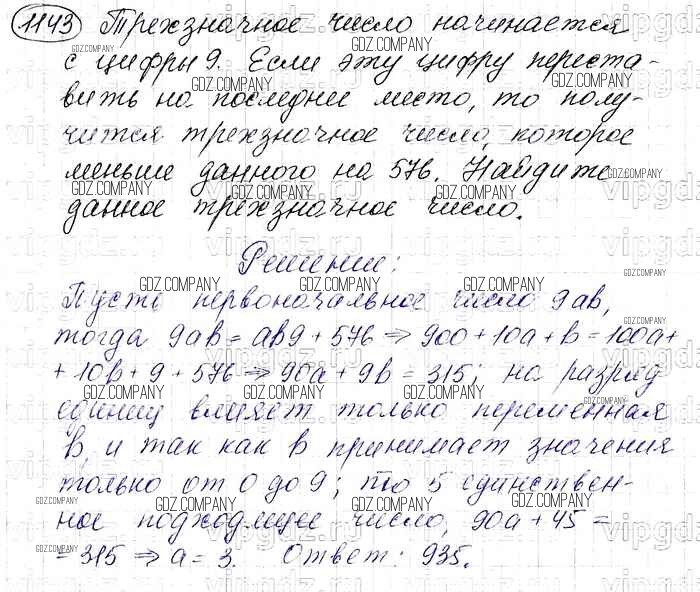 1143 Трехзначное число начинается
с цифры 9. Если эту цифру переста-
вить на последнее место, то полу-
чится трехзначное число, которое
меньше данного на 576. Найдите
данное трехзначное число.
Решение:
Пусть первоначальное число 9ab,
тогда 9ab = ab9 + 576 => 900 + 10a + b = 100a +
+ 10b + 9 + 576 => 90a + 9b = 315; на разряд
единиц влияет только переменная
b, и так как b принимает значения
только от 0 до 9; то 5 единствен-
ное подходящее число, 90a + 45 =
= 315 => a = 3. Ответ: 935.